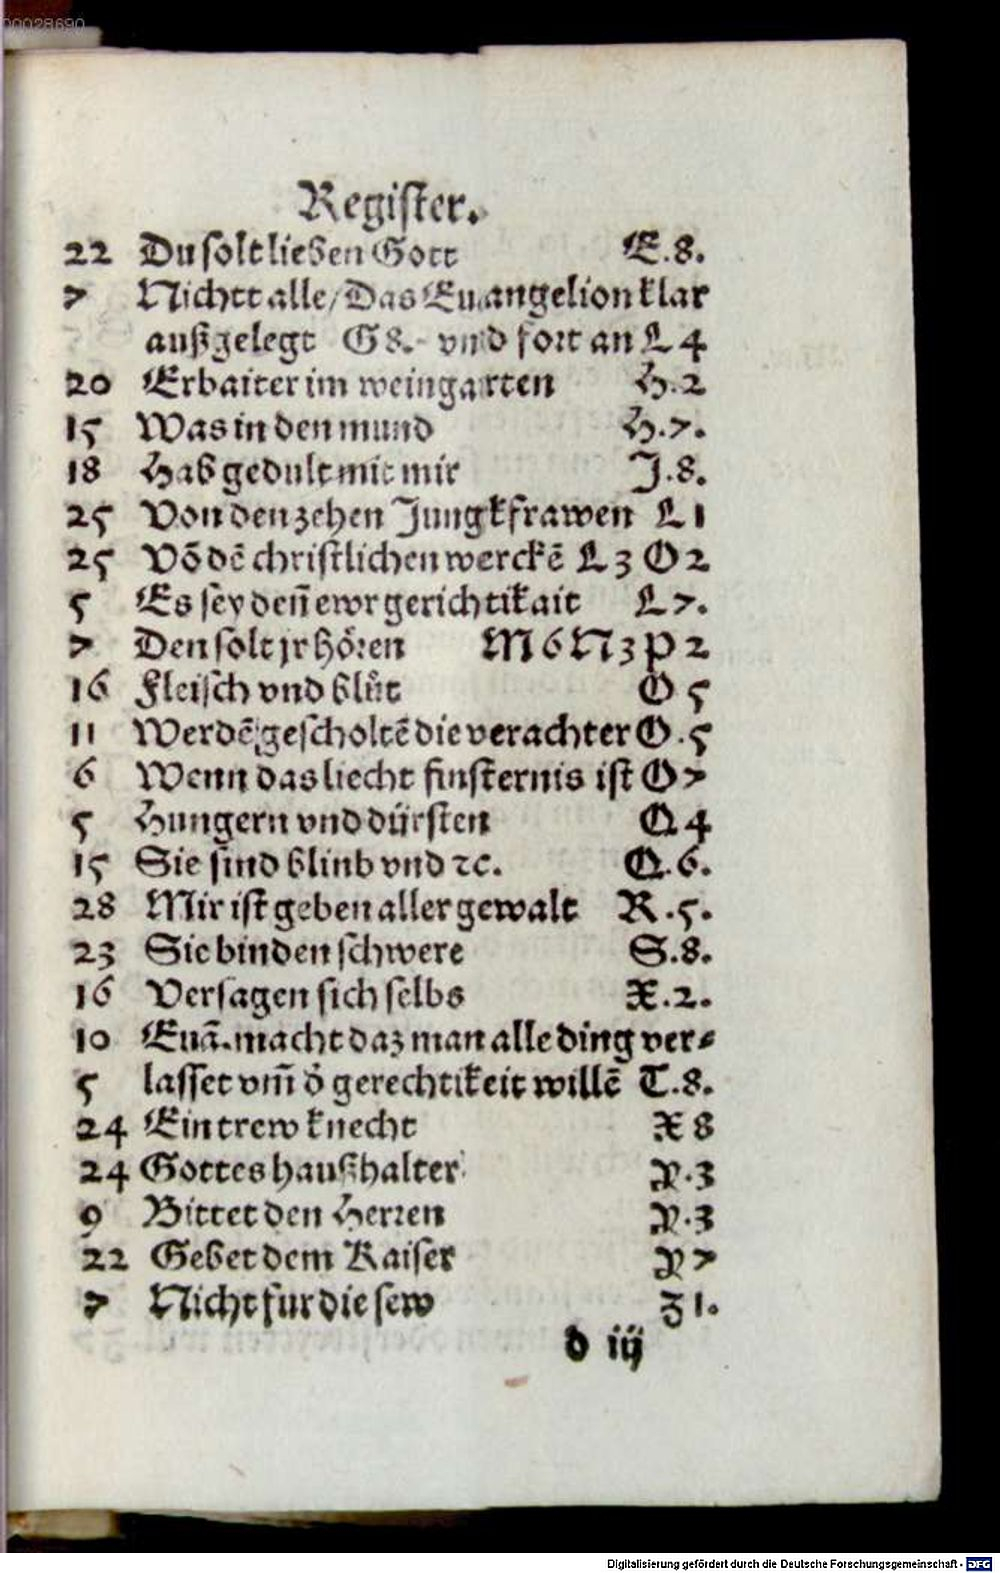 00028690
Register.
22 Du solt lieben Gott E.8.
7 Nichtt alle/Das Euangelion klar
außgelegt G 8. vnd fort an L 4
20 Erbaiter im weingarten H.2
15 Was in den mund H.7.
18 Hab gedult mit mir J.8.
25 Von den zehen Jungkfrawen L 1
25 Võ dẽ christlichen werckẽ L 3 O 2
5 Es sey deñ ewr gerichtikait L 7.
7 Den solt jr hören M 6 N 3 P 2
16 Fleisch vnd blůt O 5
11 Werdẽ gescholtẽ die verachter O.5
6 Wenn das liecht finsternis ist O 7
5 Hungern vnd dürsten Q 4
15 Sie sind blinb vnd ꝛc. Q.6.
28 Mir ist geben aller gewalt R.5.
23 Sie binden schwere S.8.
16 Versagen sich selbs X.2.
10 Euã. macht daz man alle ding ver⸗
5 lasset vm̃ d̕ gerechtikeit willẽ T.8.
24 Ein trew knecht X 8
24 Gottes haußhalter Y.3
9 Bittet den Herren Y.3
22 Gebet dem Kaiser Y 7
7 Nicht fur die sew Z 1.
d iij
Digitalisierung gefördert durch die Deutsche Forschungsgemeinschaft - DFG